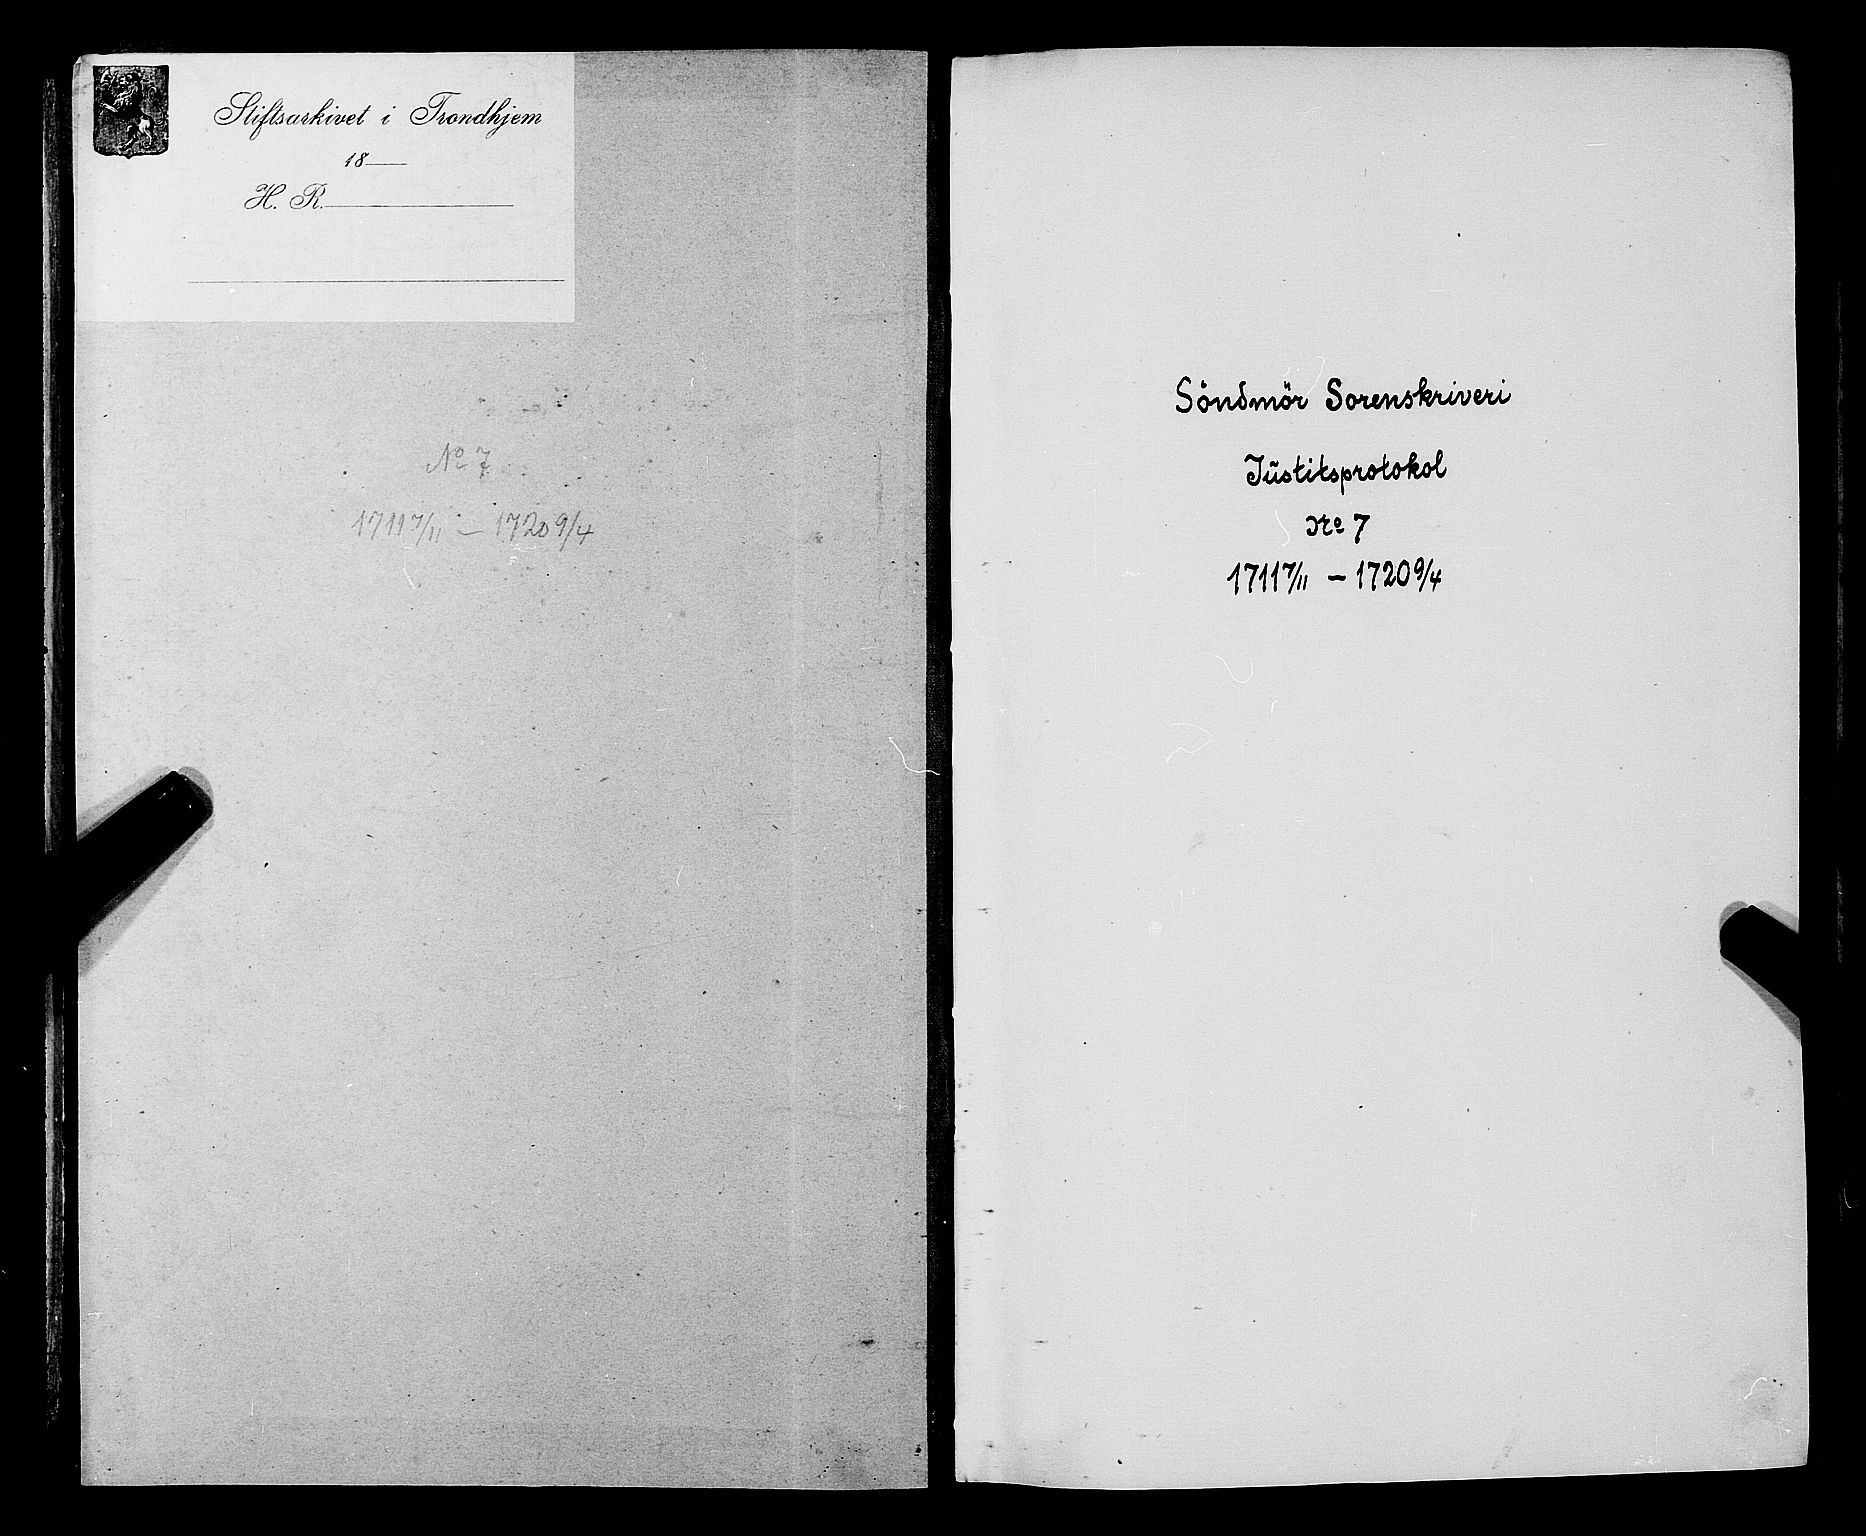 Stiftsarkivet i Trondhjem
18
H. R.
No 7
1711 7/11 – 1720 9/4
Söndmör Sorenskriveri
Jŭstitsprotokol
No 7
1711 7/11 – 1720 9/4